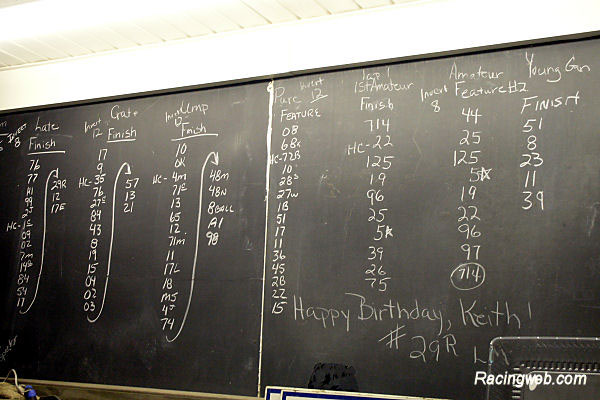 Late
Finish
76
77
A1
99
25
HC-1E
09
02
7m
14B
84
54
17
29R
12
17E
Invert
12
Crate
Finish
17
9
HC-35
76
27E
84
43
8
19
15
04
02
03
57
13
21
Ump
Finish
10
0K
HC-4m
71E
13
65
12
71m
11
17L
18
M5
47
74
48m
48N
8BALL
A1
98
Pure
Invert
12
FEATURE
08
68x
HC-72B
10
28s
27W
1B
51
17
11
36
45
28
22
15
1st Amateur
Finish
714
HC-22
125
19
96
25
5K
39
26
75
Amateur
Invert
8
Feature #2
44
25
125
5K
19
22
96
97
714
Young Gun
FINISH
51
8
23
11
39
Happy Birthday, Keith!
# 29R LM
Racingweb.com